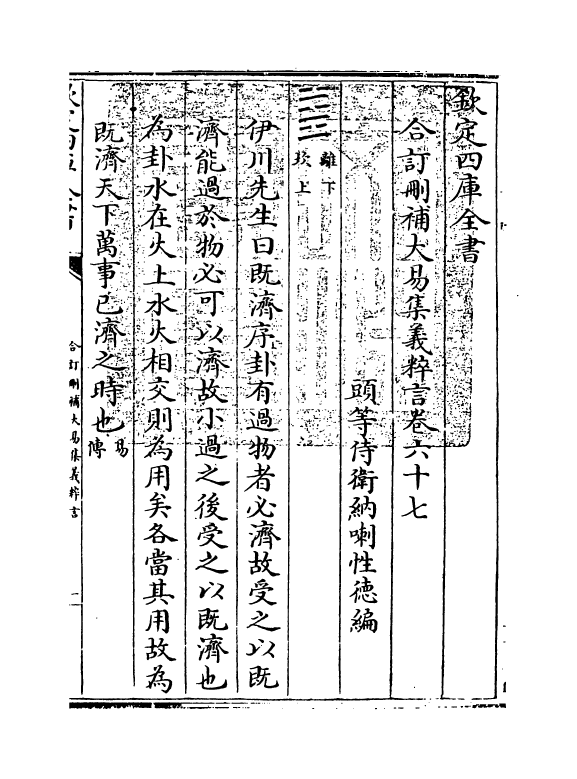 欽定四庫全書
合訂刪補大易集義粹言卷六十七
頭等侍衛納喇性德編
離下
坎上
伊川先生曰既濟序卦有過物者必濟故受之以既
濟能過於物必可以濟故小過之後受之以既濟也
為卦水在火上水火相交則為用矣各當其用故為
既濟天下萬事已濟之時也易傳
合訂刪補大易集義粹言